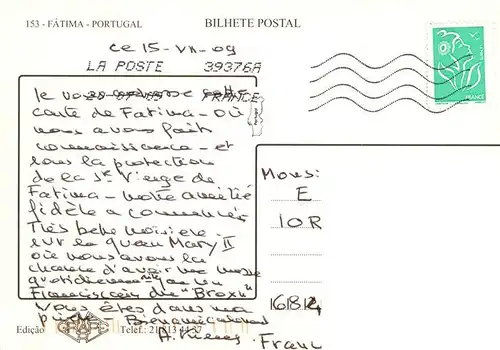 153 - FÁTIMA - PORTUGAL
BILHETE POSTAL
ce 15-VII-09
LA POSTE 39376A
FRANCE
Je vous adresse cette
carte de Fatima - où
nous avons fait
connaissance - et
sous la protection
de la Ste Vierge de
Fatima - notre amitié
fidèle a commencé
Très belle
sur le Queen Mary II
où nous avons la
chance d'avoir une messe
quotidienne par un
Franciscain du "Bronx"
Vous êtes dans ma
Monsi
E
IOR
Franc
Edição
Telef.: